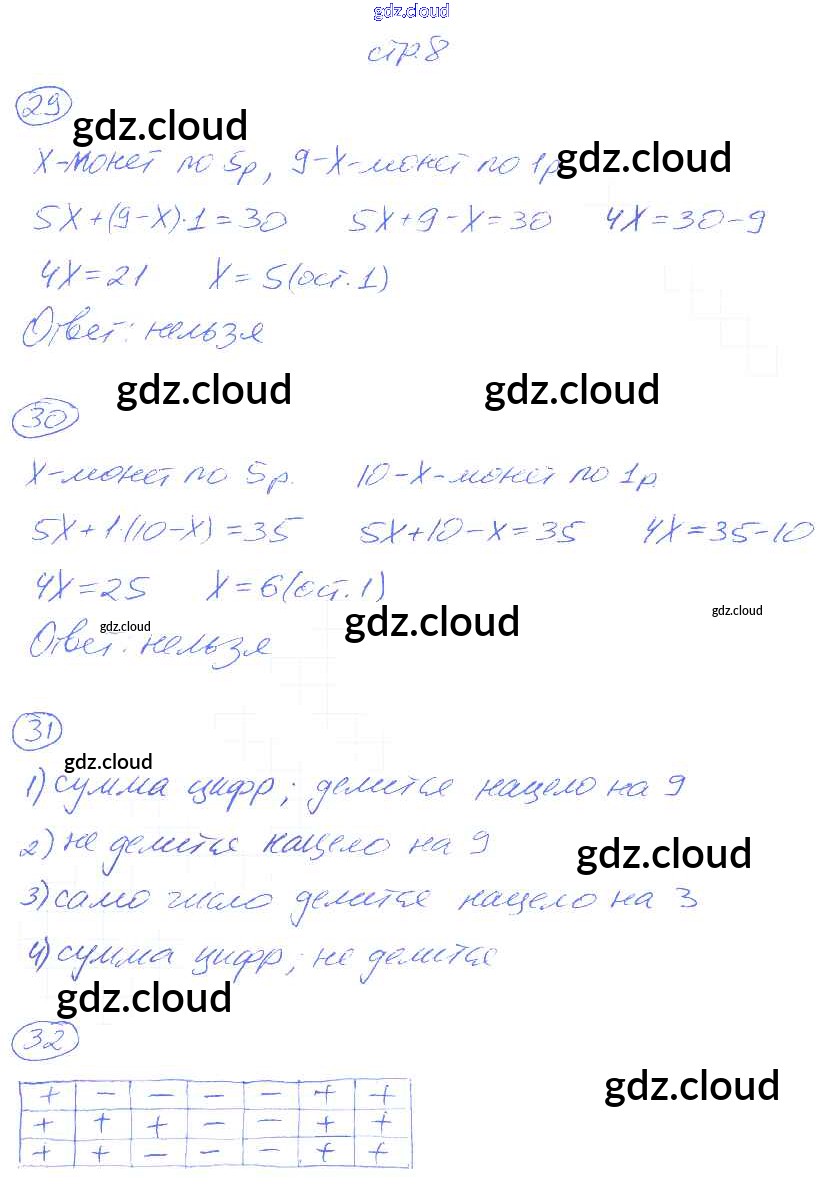 gdz.cloud
стр.8
29
gdz.cloud
x-монет по 5р, 9-x-монет по 1р
gdz.cloud
5x+(9-x)·1=30 5x+9-x=30 4x=30-9
4x=21 x=5(ост.1)
Ответ: нельзя
gdz.cloud gdz.cloud
30
x-монет по 5р. 10-x-монет по 1р
5x+1·(10-x)=35 5x+10-x=35 4x=35-10
4x=25 x=6(ост.1)
gdz.cloud gdz.cloud gdz.cloud
Ответ: нельзя
31
gdz.cloud
1) сумма цифр; делится нацело на 9
2) не делится нацело на 9
gdz.cloud
3) само число делится нацело на 3
4) сумма цифр; не делится
gdz.cloud
32
gdz.cloud
+ - - - - + +
+ + + - - + +
+ + - - - + +